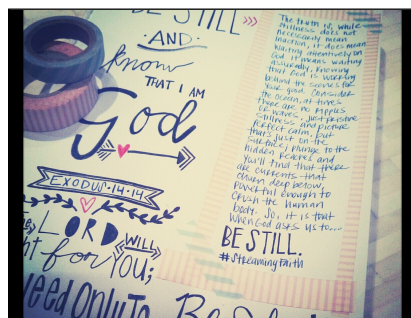 BE STILL
·AND·
know
THAT I AM
God
EXODUS·14·14
LORD
WILL
for YOU;
need ONLY To Be
The truth is, while
stillness does not
necessarily mean
inaction, it does mean
waiting attentively on
God. it means waiting
assuredly, knowing
that God is working
behind the scenes for
your good. Consider
the ocean, at times
there are no ripples
or waves, just pristine
stillness and picture
perfect calm, but
that's just on the
surface; plunge to the
hidden reaches and
you'll find that there
are currents that
churn deep below,
powerful enough to
crush the human
body. So, it is that
when God asks us to...
BE STILL.
#streamingfaith